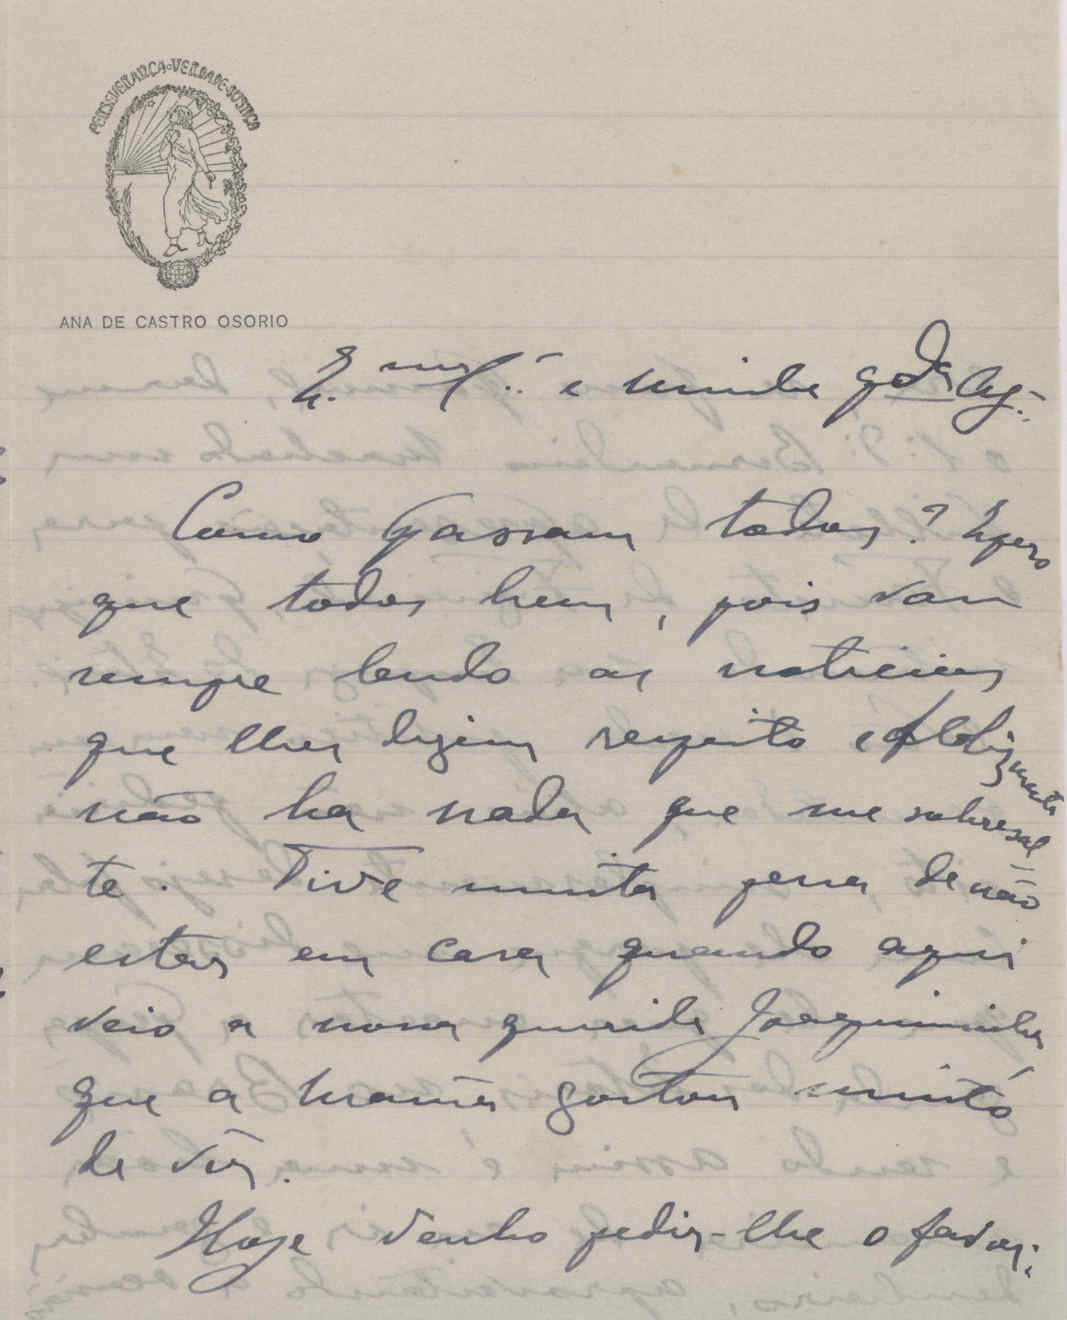 PERSEVERANÇA-VERDADE-JUSTIÇA
ANA DE CASTRO OSORIO
E.ma S.ª e minha gde Ag.:
Como passam todos? Espero
que todos bem, pois vou
sempre lendo as noticias
que lhes dizem respeito e felizmente
não ha nada que me sobresal-
te. Tive muita pena de não
estar em casa quando aqui
veio a nossa querida Joaquininha
que a Mamã gostou muito
de vêr.
Hoje venho pedir-lhe o favor: